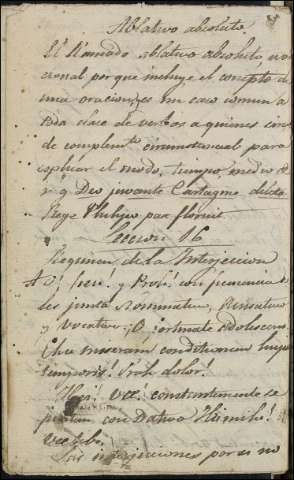 Ablativo absoluto.
El llamado ablativo absoluto, ora
cional porque incluye el concepto de
una oracion, es un caso comun a
toda clase de verbos a quienes sir
de complemto circunstancial para
esplicar el modo, tiempo, medio &
v. g. Deo juvante Cartagme deleta
Rege Philipo pax floruit
Leccion 16
Regimen de la Interjeccion
A O! heu! y Proh! con frecuencia
les junta Nominativo, Acusativo
y Vocativo; O fortunate adolescens
Eheu miseram conditionem hujus
temporis! Proh dolor!
Hei! Væ! constantemente se
juntan con Dativo Hei mihi!
Væ tibi.
Las interjecciones por si no